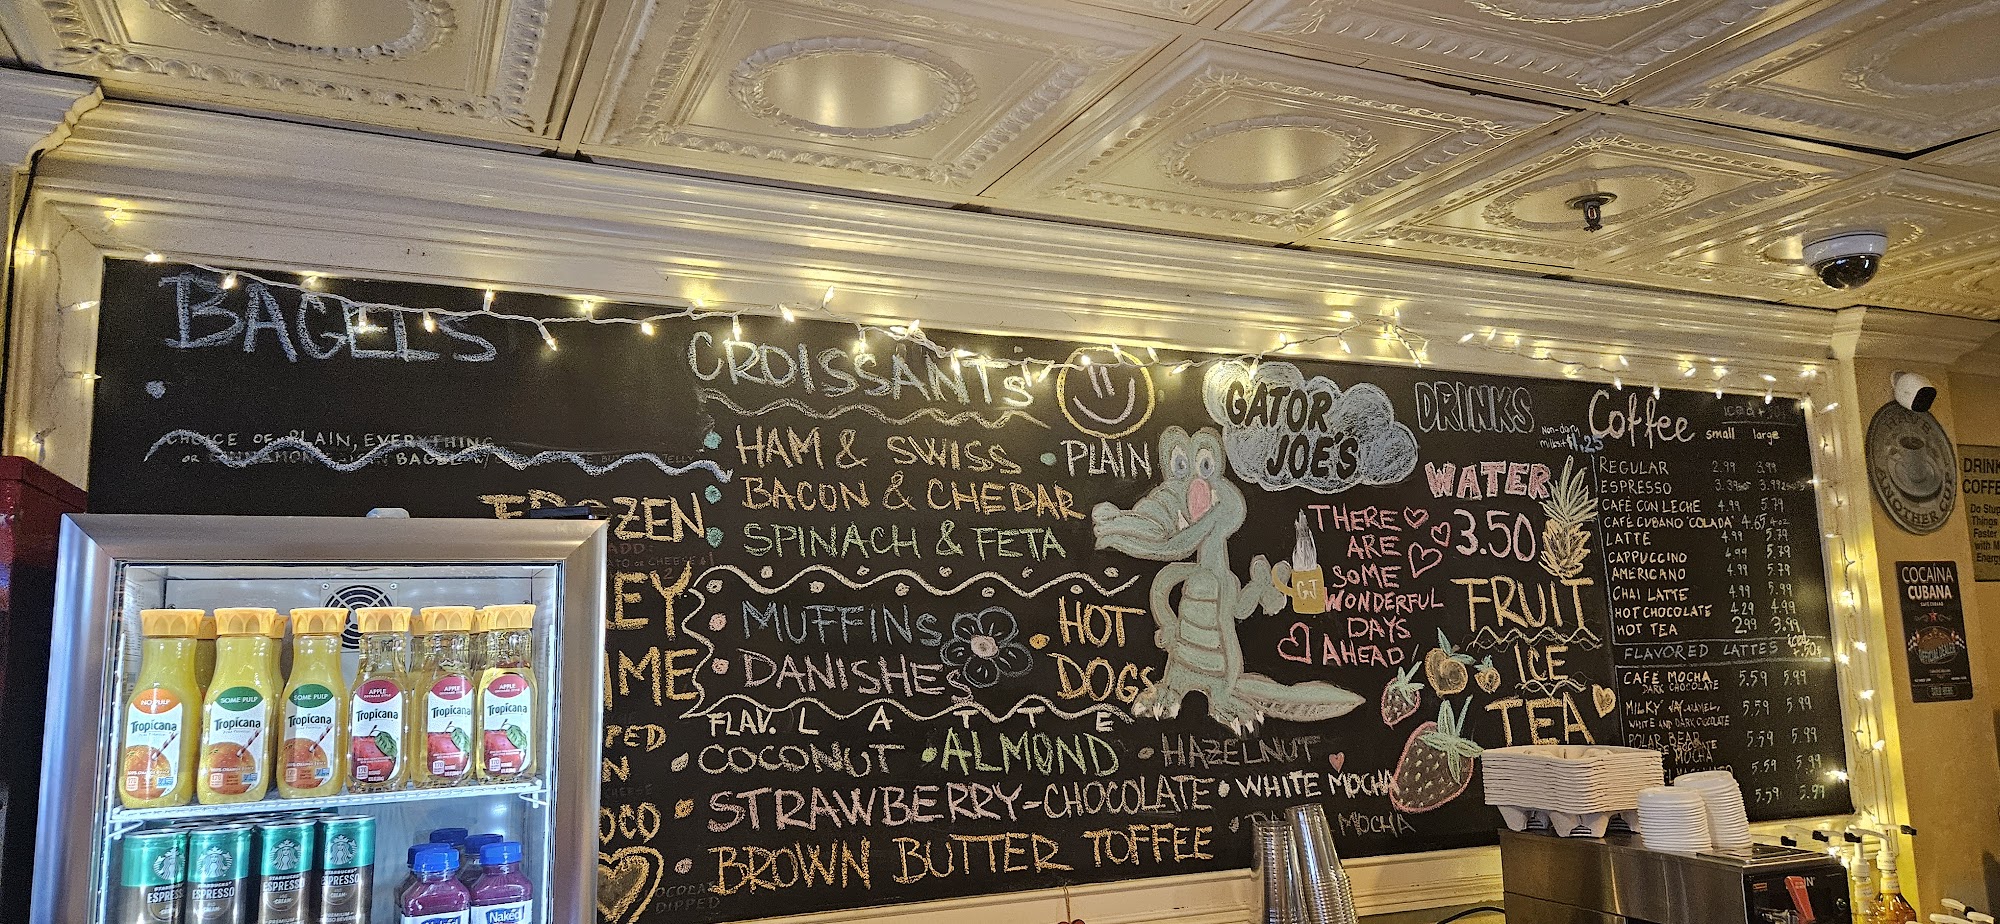 BAGELS
CHOICE OF PLAIN, EVERYTHING
OR CINNAMON BAGEL W/ JELLY
FROZEN
EY
IME
CROISSANTS
HAM & SWISS
PLAIN
BACON & CHEDAR
SPINACH & FETA
MUFFINS
DANISHES
HOT
DOGS
FLAV. LATTE
COCONUT
ALMOND
HAZELNUT
STRAWBERRY-CHOCOLATE
WHITE MOCHA
MOCHA
BROWN BUTTER TOFFEE
DIPPED
GATOR
JOE'S
GJ
THERE
ARE
SOME
WONDERFUL
DAYS
AHEAD!
DRINKS
WATER
3.50
FRUIT
ICE
TEA
Non-dairy
milks + $1.25
Coffee
iced +
small large
REGULAR 2.99 3.99
ESPRESSO
CAFÉ CON LECHE 4.99 5.79
CAFÉ CUBANO 'COLADA' 4.65 4oz
LATTE 4.99 5.79
CAPPUCCINO 4.99 5.79
AMERICANO 4.99 5.79
CHAI LATTE 4.99 5.99
HOT CHOCOLATE 4.29 4.99
HOT TEA 2.99 3.99
FLAVORED LATTES iced
CAFÉ MOCHA 5.59 5.99
DARK CHOCOLATE
MILKY WAY 5.59 5.99
WHITE AND DARK CHOCOLATE
POLAR BEAR 5.59 5.99
MOCHA
5.59 5.99
5.59 5.99
HAVE
ANOTHER CUP
DRINK
COFFEE
Do Stupid
Things
Faster
with More
Energy
COCAÍNA
CUBANA
OFFICIAL DEALER
NO PULP
Tropicana
SOME PULP
Tropicana
SOME PULP
Tropicana
APPLE
Tropicana
APPLE
Tropicana
APPLE
Tropicana
STARBUCKS
ESPRESSO
CREAM
STARBUCKS
ESPRESSO
CREAM
STARBUCKS
ESPRESSO
CREAM
STARBUCKS
ESPRESSO
CREAM
Naked
Naked